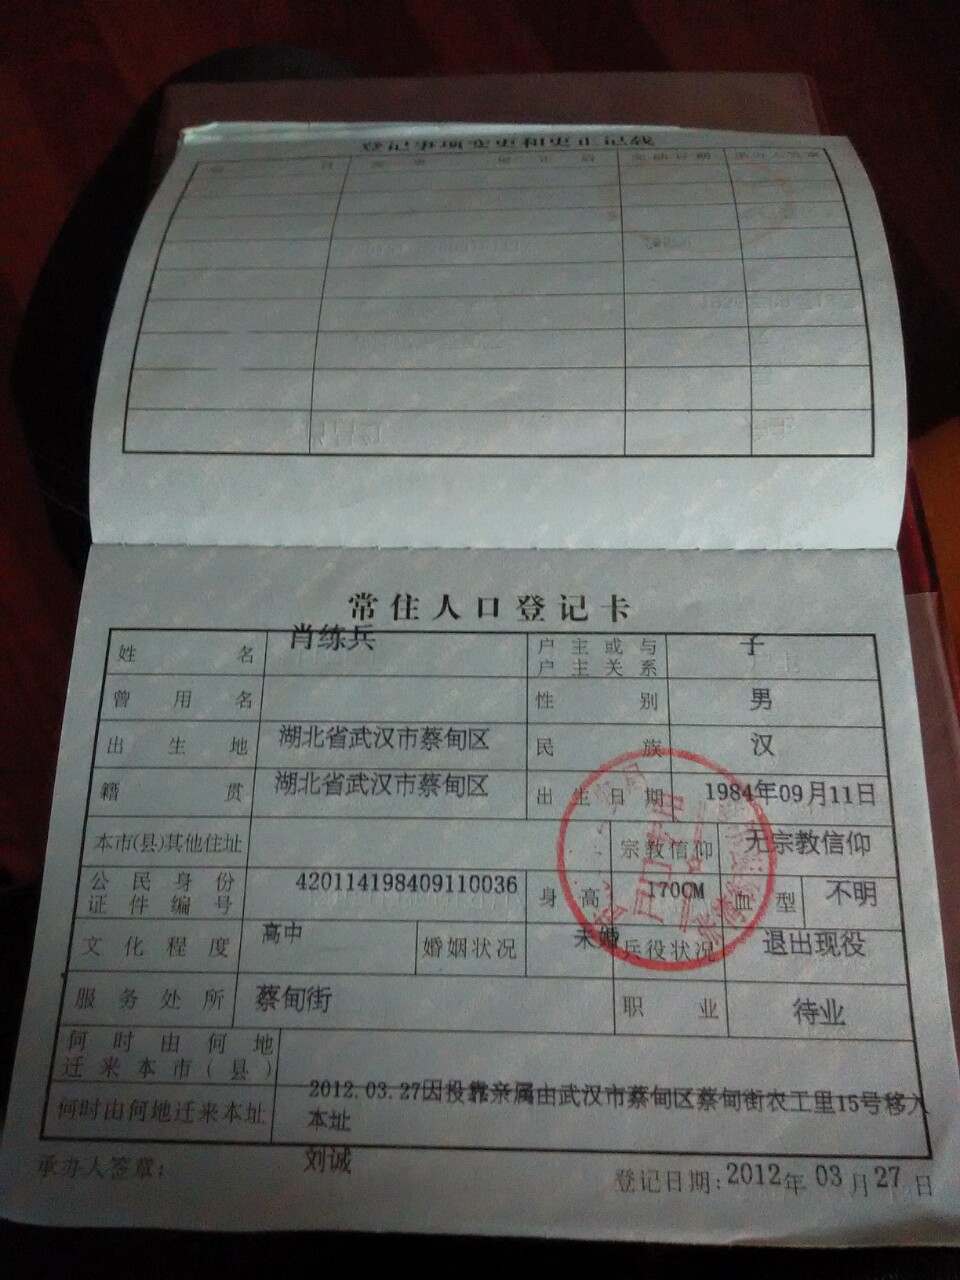 登记事项变更和更正记载
常住人口登记卡
姓名 肖练兵 户主或与户主关系 子
曾用名 性别 男
出生地 湖北省武汉市蔡甸区 民族 汉
籍贯 湖北省武汉市蔡甸区 出生日期 1984年09月11日
本市(县)其他住址 宗教信仰 无宗教信仰
公民身份证件编号 420114198409110036 身高 170CM 血型 不明
文化程度 高中 婚姻状况 未婚 兵役状况 退出现役
服务处所 蔡甸街 职业 待业
何时由何地迁来本市(县)
何时由何地迁来本址 2012.03.27因投靠亲属由武汉市蔡甸区蔡甸街农工里15号移入
本址
承办人签章: 刘诚 登记日期:2012年03月27日